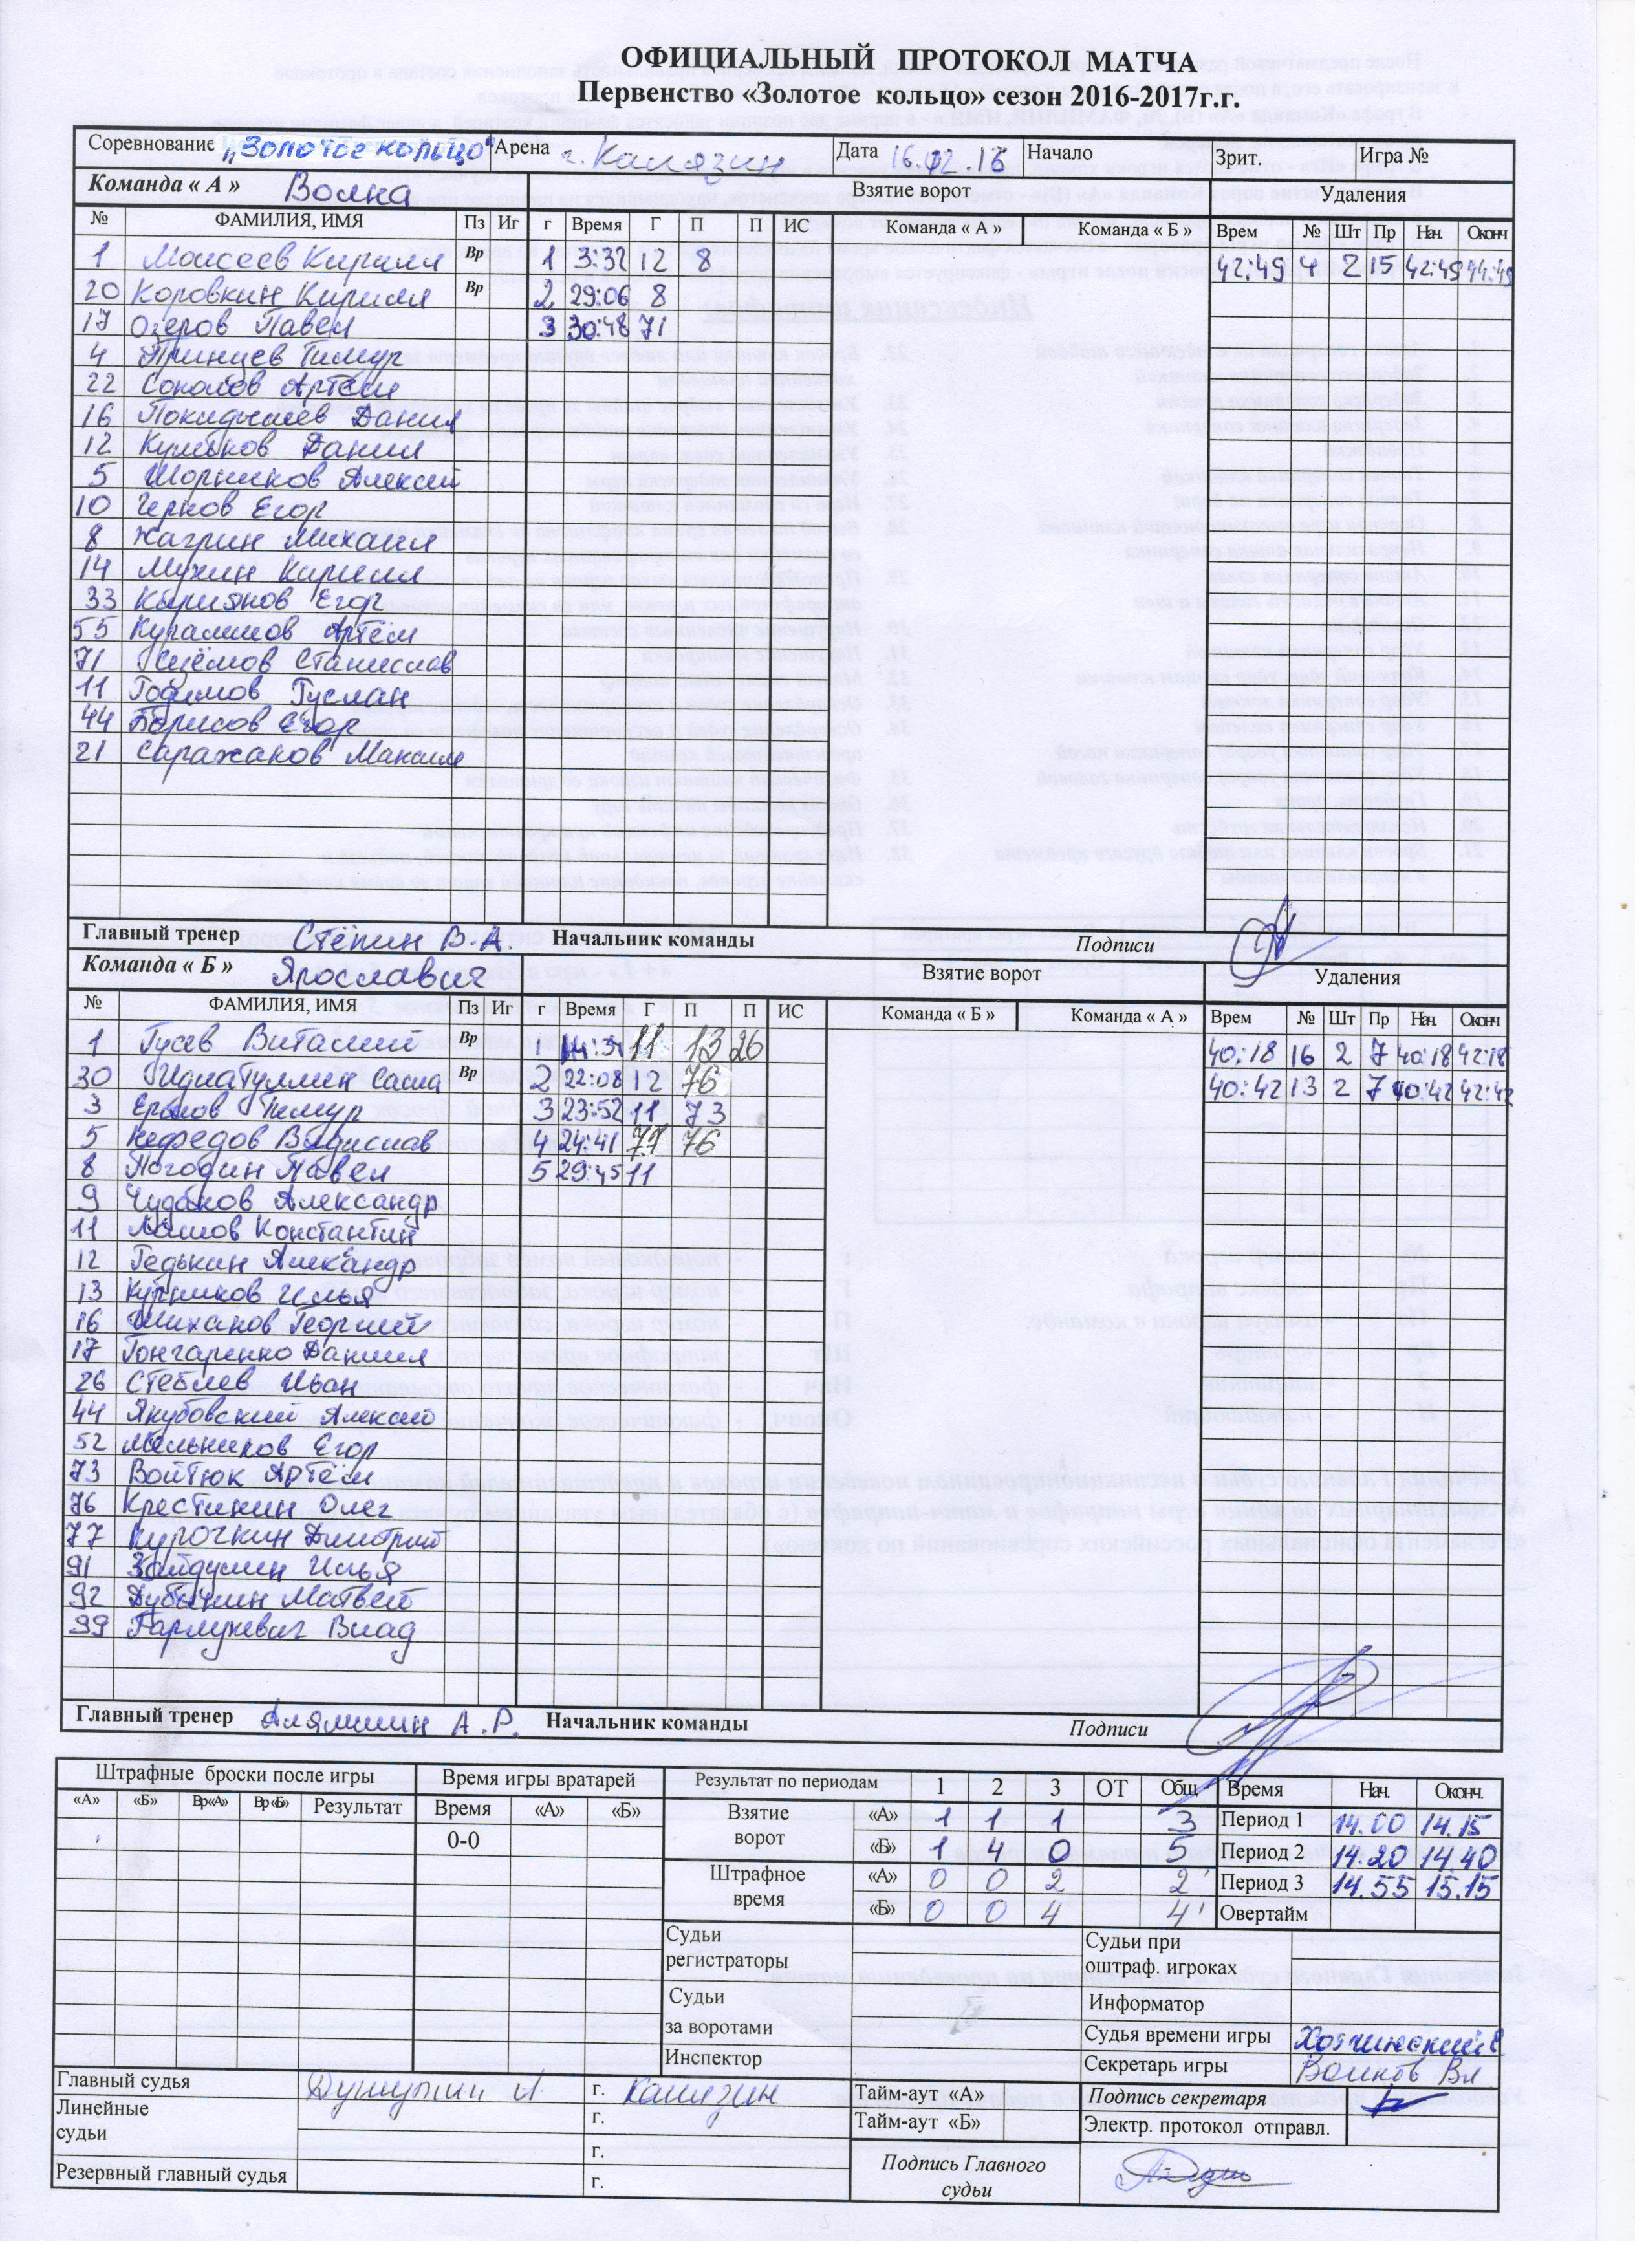 ОФИЦИАЛЬНЫЙ ПРОТОКОЛ МАТЧА
Первенство «Золотое кольцо» сезон 2016-2017г.г.
Соревнование „Золотое кольцо" Арена г. Калязин Дата Начало Зрит. Игра №
Команда « А » Волна Взятие ворот Удаления
№ ФАМИЛИЯ, ИМЯ Пз Иг г Время Г П П ИС Команда « А » Команда « Б » Врем № Шт Пр Нач. Оконч
1 Моисеев Кирилл Вр 1 3:32 2 8 42:49 4 2 15 42:49 44:49
20 Коровкин Кирилл Вр 2 29:06 8
17 Озеров Павел 3 30:48 71
4 Принцев Тимур
22 Соколов Артём
16 Данил
12 Куликов Данил
5 Шорников Алексей
10 Чернов Егор
8 Жагрин Михаил
14 Мухин Кирилл
33 Кырианов Егор
55 Артём
71 Станислав
11 Руслан
44 Борисов Егор
21 Саражаков Максим
Главный тренер Стёпин В.А. Начальник команды Подписи
Команда « Б » Ярославич Взятие ворот Удаления
№ ФАМИЛИЯ, ИМЯ Пз Иг г Время Г П П ИС Команда « Б » Команда « А » Врем № Шт Пр Нач. Оконч
1 Гусев Виталий Вр 1 11 13 26 40:18 16 2 7 40:18 42:18
30 Саша Вр 2 22:08 12 76 40:42 13 2 7 40:42 42:42
3 Тимур 3 23:52 11 73
5 Нефедов Владислав 4 24:41 77 76
8 Погодин Павел 5 29:45 11
9 Чудаков Александр
11 Константин
12 Редькин Александр
13 Курников Илья
16 Шиханов Георгий
17 Гончаренко Даниил
26 Стеблев Иван
44 Якубовский Алексей
52 Мельников Егор
73 Войтюк Артём
76 Крестинин Олег
77 Курочкин Дмитрий
91 Зайдулин Илья
92 Матвей
99 Влад
Главный тренер Алямшин А.Р. Начальник команды Подписи
Штрафные броски после игры Время игры вратарей Результат по периодам 1 2 3 ОТ Общ Время Нач. Оконч.
«А» «Б» Вр «А» Вр «Б» Результат Время «А» «Б» Взятие ворот «А» 1 1 1 3 Период 1 14.00 14.15
0-0 «Б» 1 4 0 5 Период 2 14.20 14.40
Штрафное время «А» 0 0 2 2' Период 3 14.55 15.15
«Б» 0 0 4 4' Овертайм
Судьи регистраторы Судьи при оштраф. игроках
Судьи за воротами Информатор
Судья времени игры
Инспектор Секретарь игры Волков Вл
Главный судья г. Калязин Тайм-аут «А» Подпись секретаря
Линейные судьи г. Тайм-аут «Б» Электр. протокол отправл.
г. Подпись Главного судьи
Резервный главный судья г.